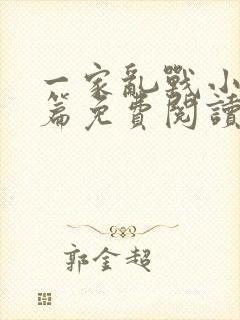 一家亂戰小
篇免費閱讀
郭金超